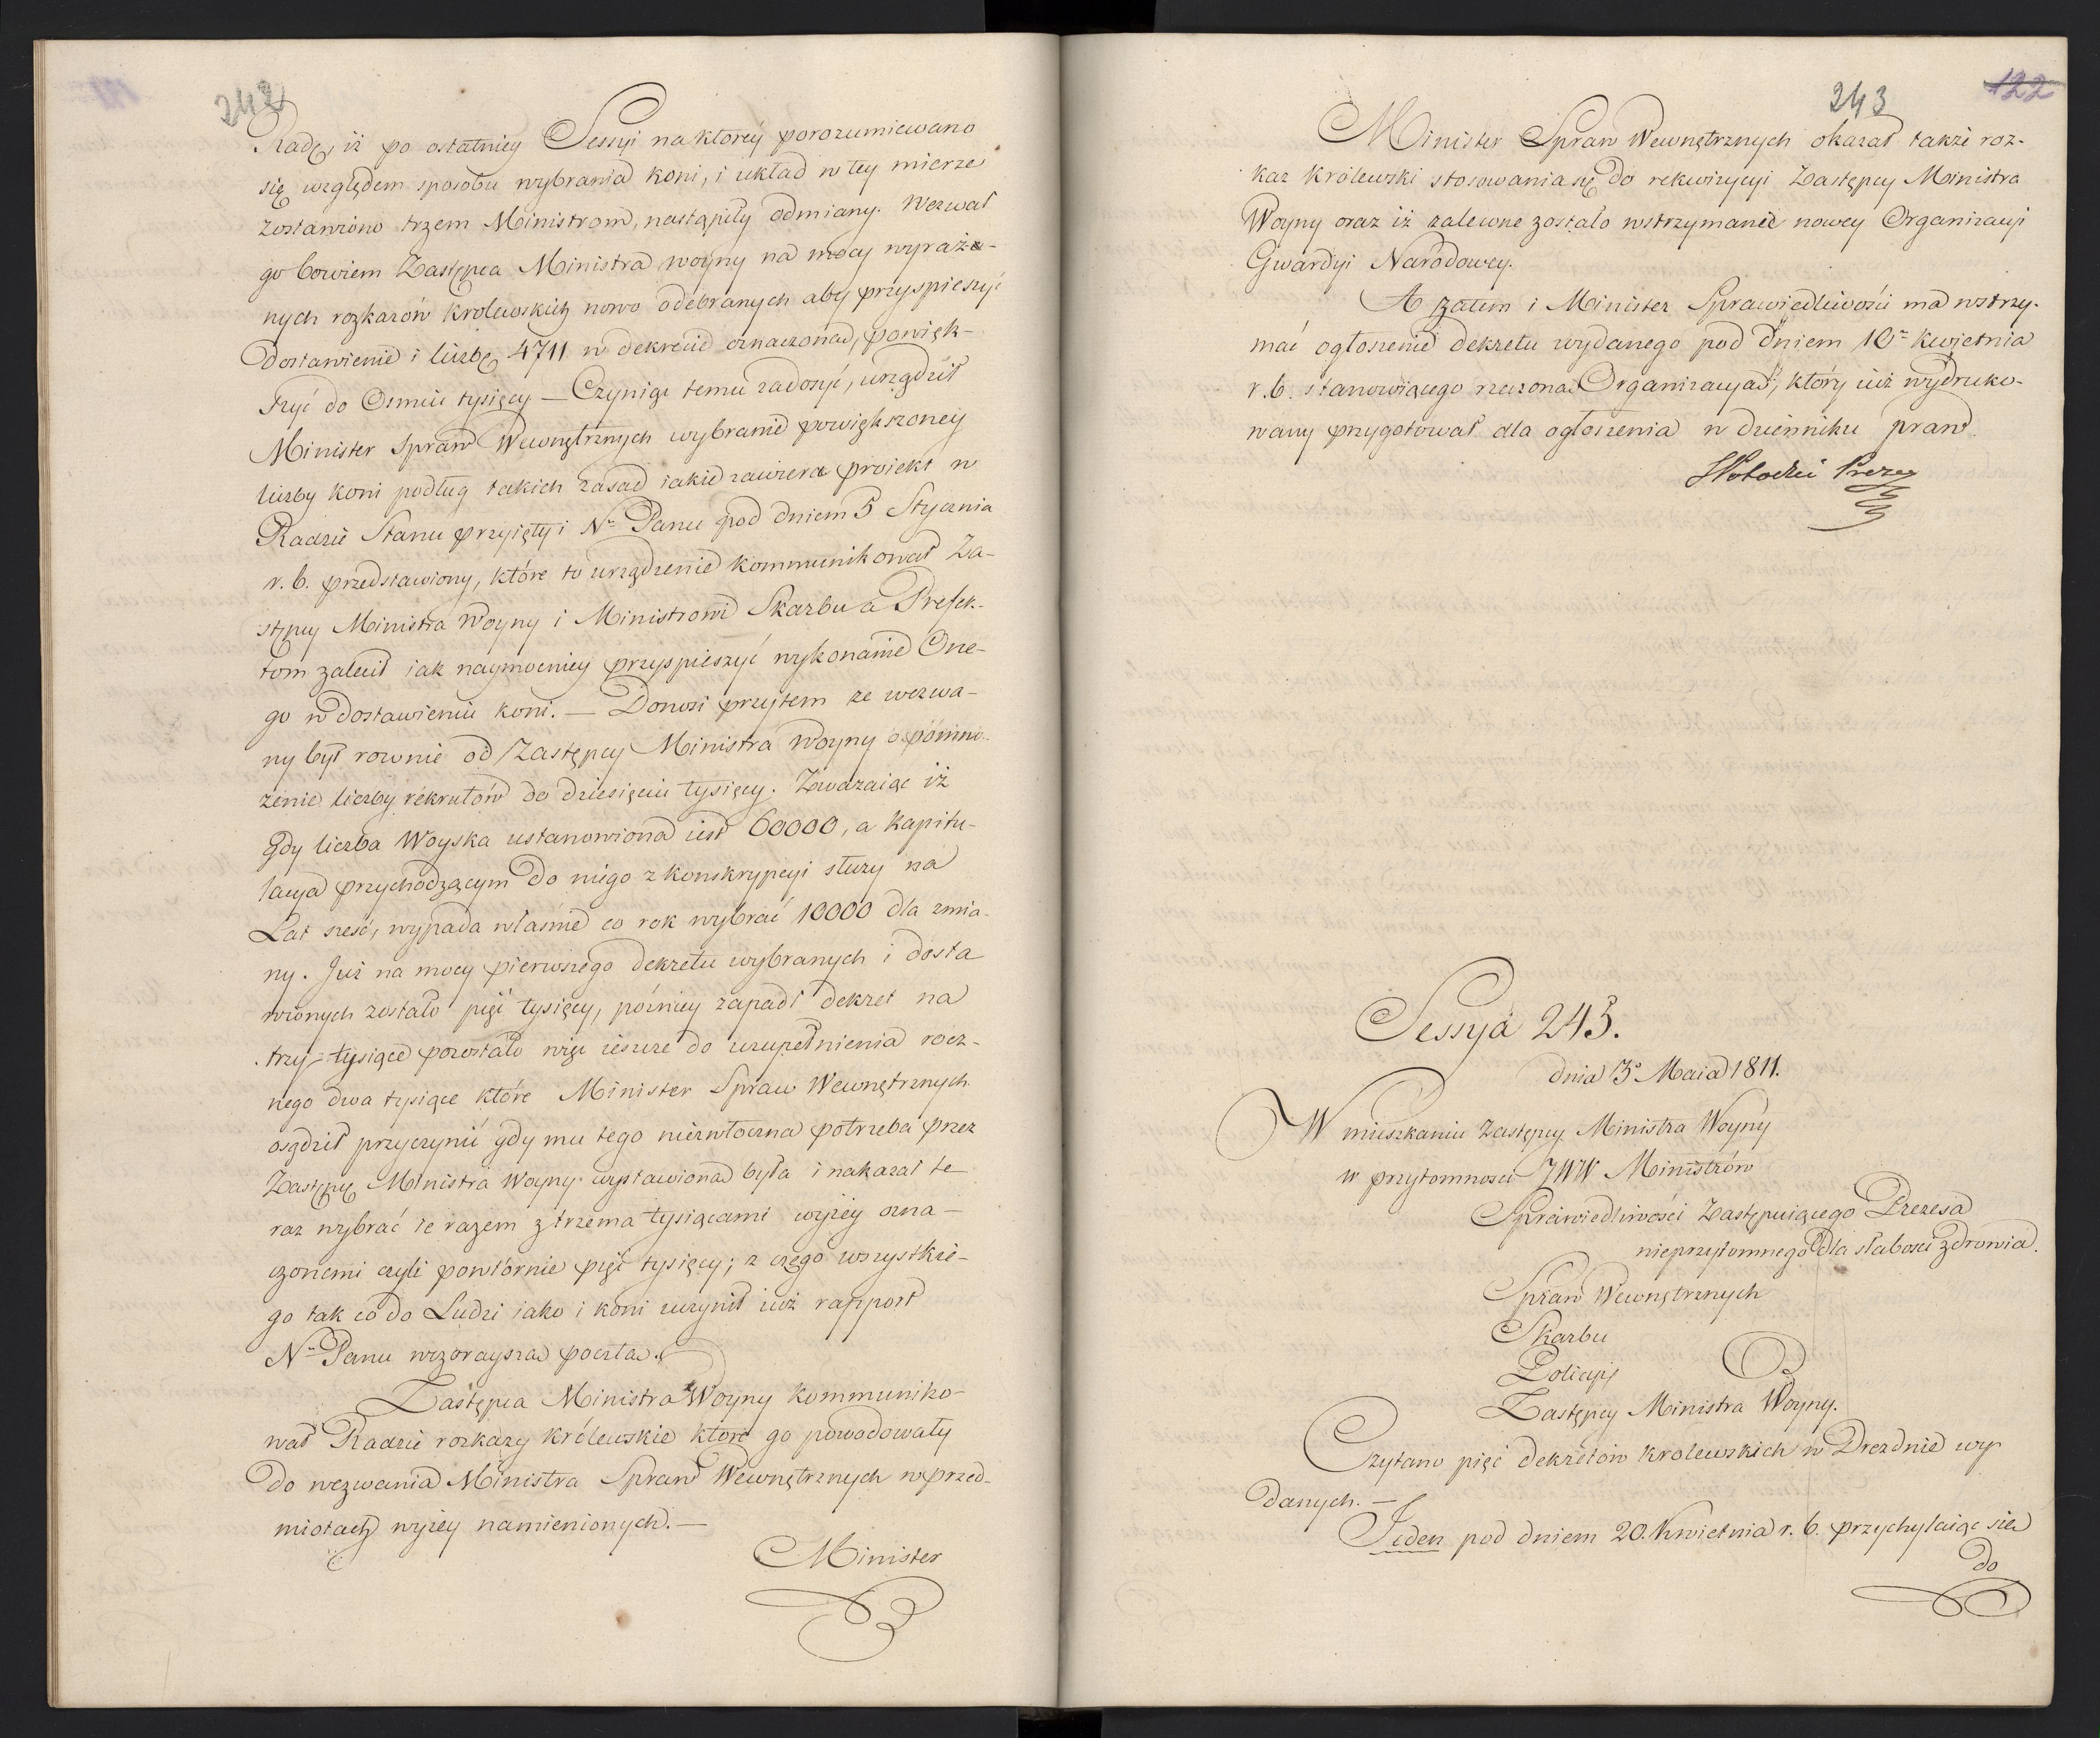 242
Radę, iż po ostatniey Sessyi na ktorey porozumiewano
się względem sposobu wybrania koni, i układ w tey mierze
zostawiono trzem Ministrom, nastąpiły odmiany. Wezwał
go bowiem Zastępca Ministra woyny na mocy wyraź-
nych rozkazów krolewskich nowo odebranych aby przyspieszyć
Dostawienie i liczbę 4711 w dekrecie oznaczoną, powięk-
szyć do Osmiu tysięcy — Czyniąc temu zadosyć, urządził
Minister Spraw Wewnętrznych wybranie powiększoney
liczby koni podług takich zasad iakie zawiera proiekt w
Radzie Stanu przyięty i Nu Panu pod dniem 5 Stycznia
r. b. przedstawiony, które to urządzenie kommunikował Za-
stępcy Ministra Woyny i Ministrowi Skarbu a Prefek-
tom zalecił iak naymocniey przyspieszyć wykonanie One-
go w dostawieniu koni. — Donosi przytem ze wezwa-
ny był rownie od Zastępcy Ministra Woyny o pomno-
żenie liczby rekrutów do dziesięciu tysięcy. Zważaiąc iż
gdy liczba Woyska ustanowiona iest 60000, a kapitu-
lacya przychodzącym do niego z konskrypcyi służy na
Lat sześć, wypada właśnie co rok wybrać 10000 dla zmia-
ny. Już na mocy pierwszego dekretu wybranych i dosta
wionych zostało pięć tysięcy, póżniey zapadł dekret na
trzy tysiące pozostało więc ieszcze do uzupełnienia rocz-
nego dwa tysiące które Minister Spraw Wewnętrznych
osądził przyczynić gdy mu tego niezwłoczna potrzeba przez
Zastępcę Ministra Woyny wystawiona była i nakazał te
raz wybrać ie razem z trzema tysiącami wyżey ozna-
czonemi czyli powtórnie pięć tysięcy; z czego wszystkie-
go tak co do Ludzi iako i koni uczynił iuż rapport
Nu Panu wczorayszą pocztą.
Zastępca Ministra Woyny kommuniko-
wał Radzie rozkazy królewskie które go powodowały
do wezwania Ministra Spraw Wewnętrznych w przed-
miotach wyżey namienionych. —
Minister
243
122
Minister Spraw Wewnętrznych okazał także roz-
kaz królewski stosowania się do rekwizycyi Zastępcy Ministra
Woyny oraz iż zalecone zostało wstrzymanie nowey Organizacyi
Gwardyi Narodowey.
A zatem i Minister Sprawiedliwości ma wstrzy-
mać ogłoszenie dekretu wydanego pod dniem 10m kwietnia
r. b. stanowiącego rzeczoną Organizacyą, który iuż wydruko-
wany przygotował dla ogłoszenia w dzienniku praw
Sessya 243.
dnia 3o Maia 1811.
W mieszkaniu Zastępcy Ministra Woyny
w przytomnosci JWW Ministrów
Sprawiedliwości Zastępuiącego Prezesa
nieprzytomnego dla słabosci zdrowia.
Spraw Wewnętrznych
Skarbu
Policyi
Zastępcy Ministra Woyny.
Czytano pięć dekretów krolewskich w Dreznie wy
danych. —
Jeden pod dniem 20. kwietnia r. b. przychylaiąc się
do